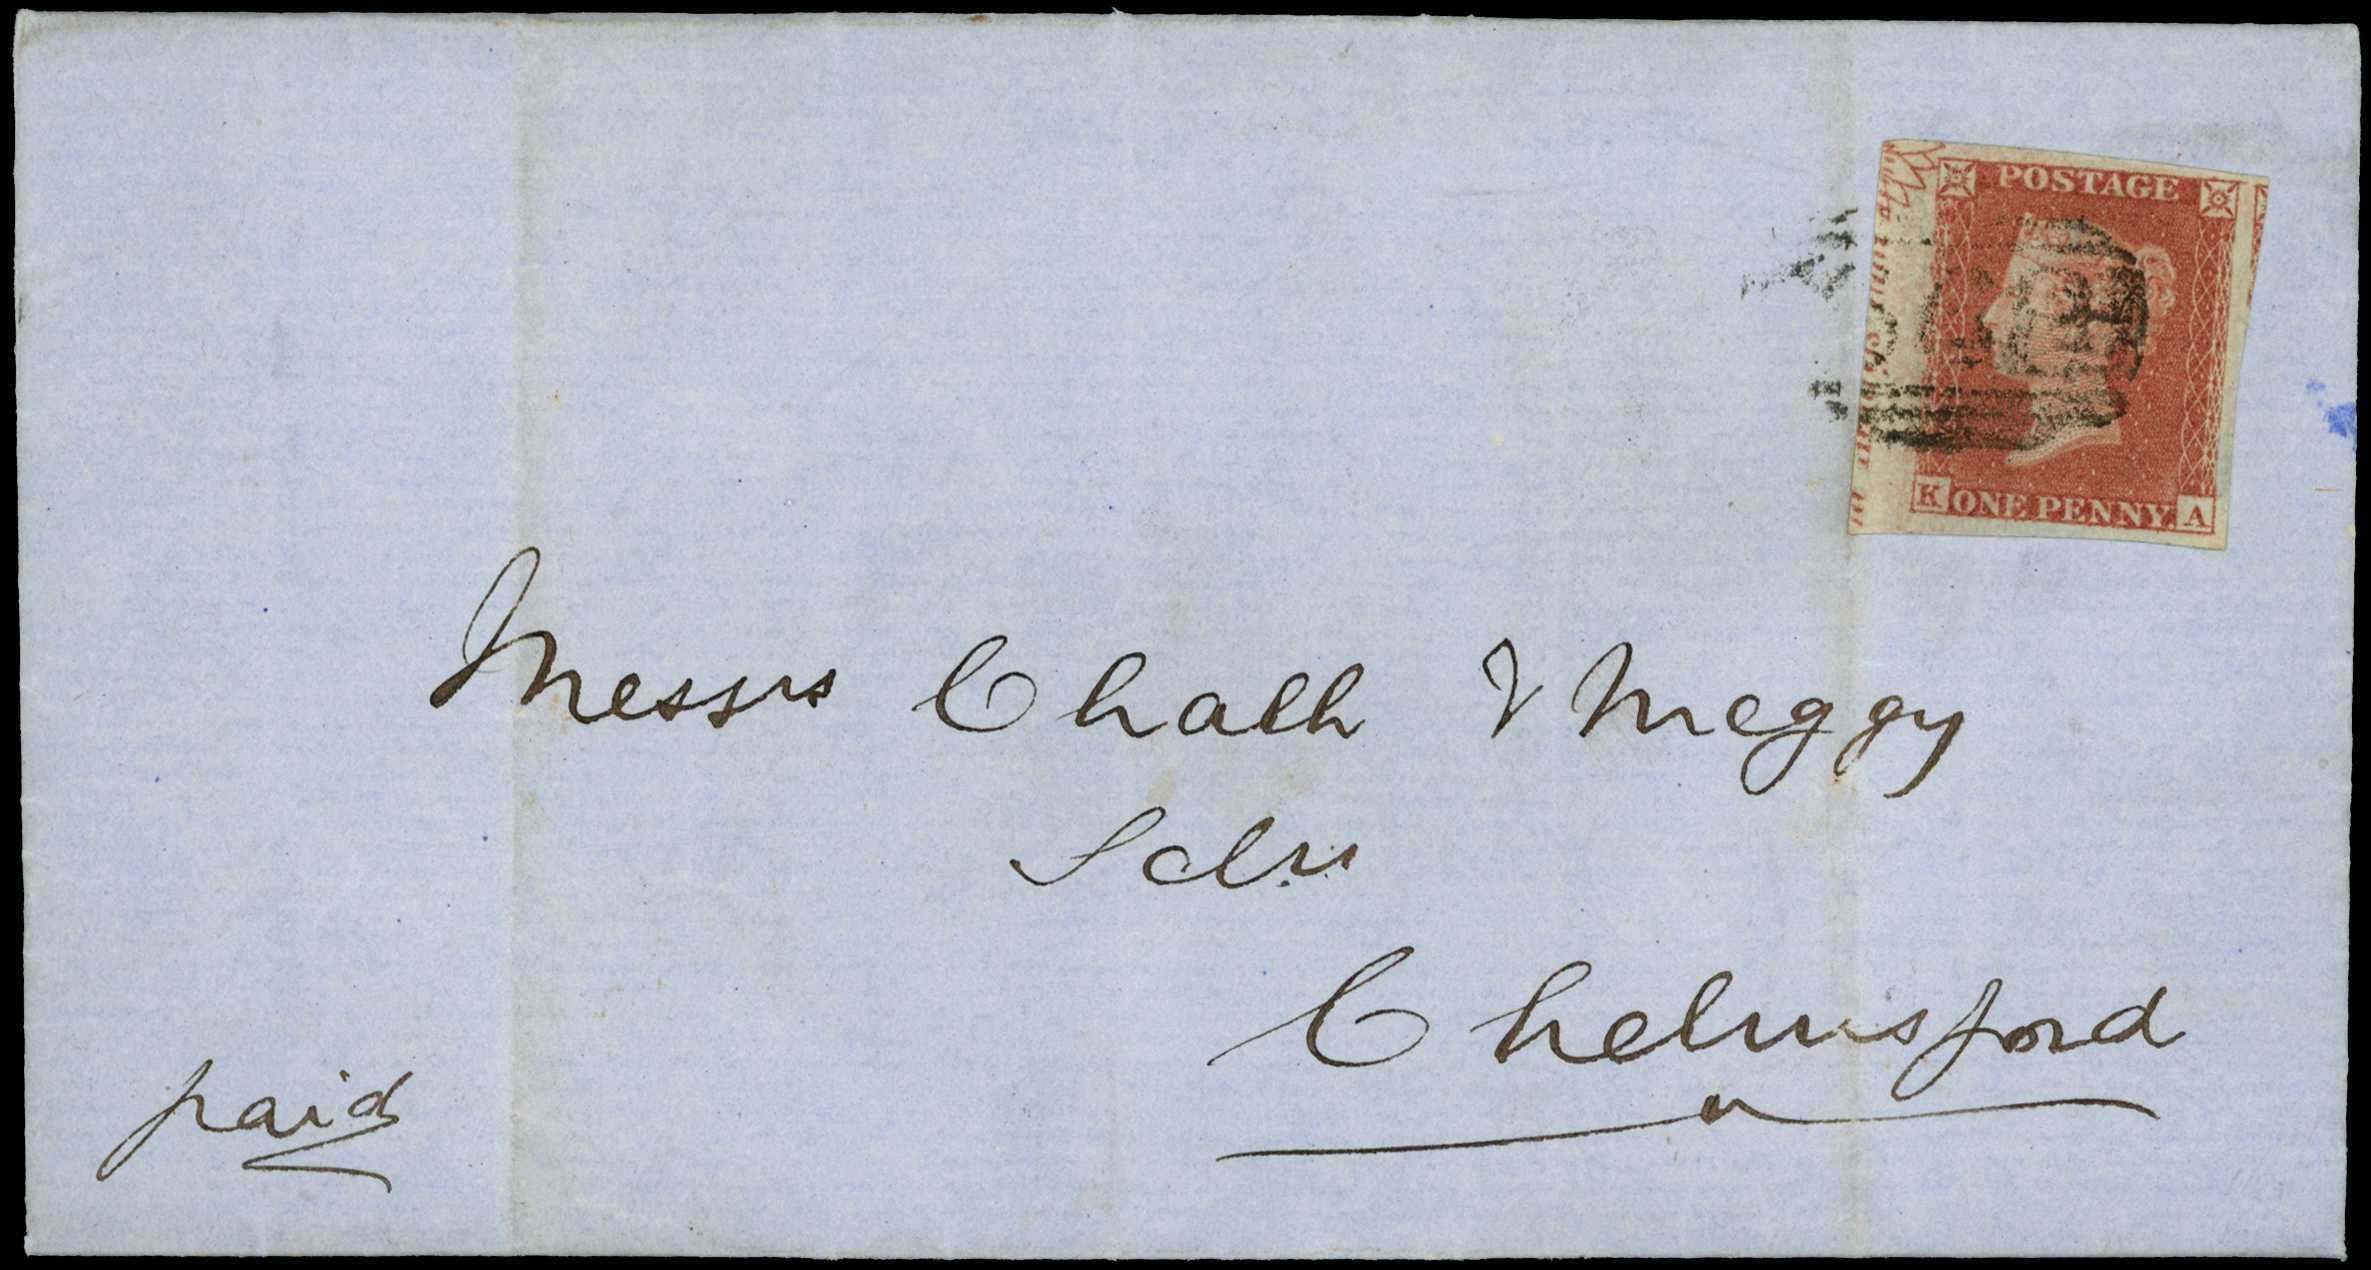 POSTAGE
K ONE PENNY. A
Messrs Chalk & Meggy
Solrs
Chelmsford
paid